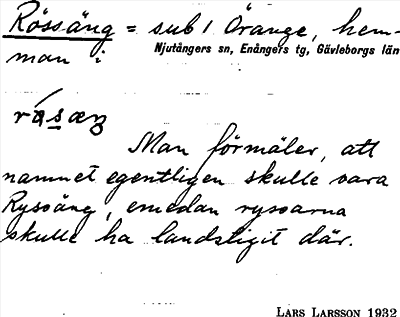 Rössäng = sub 1 Örange, hem-
man i Njutångers sn, Enångers tg, Gävleborgs län
Man förmäler, att
namnet egentligen skulle vara
Ryssäng, emedan ryssarna
skulle ha landstigit där.
LARS LARSSON 1932